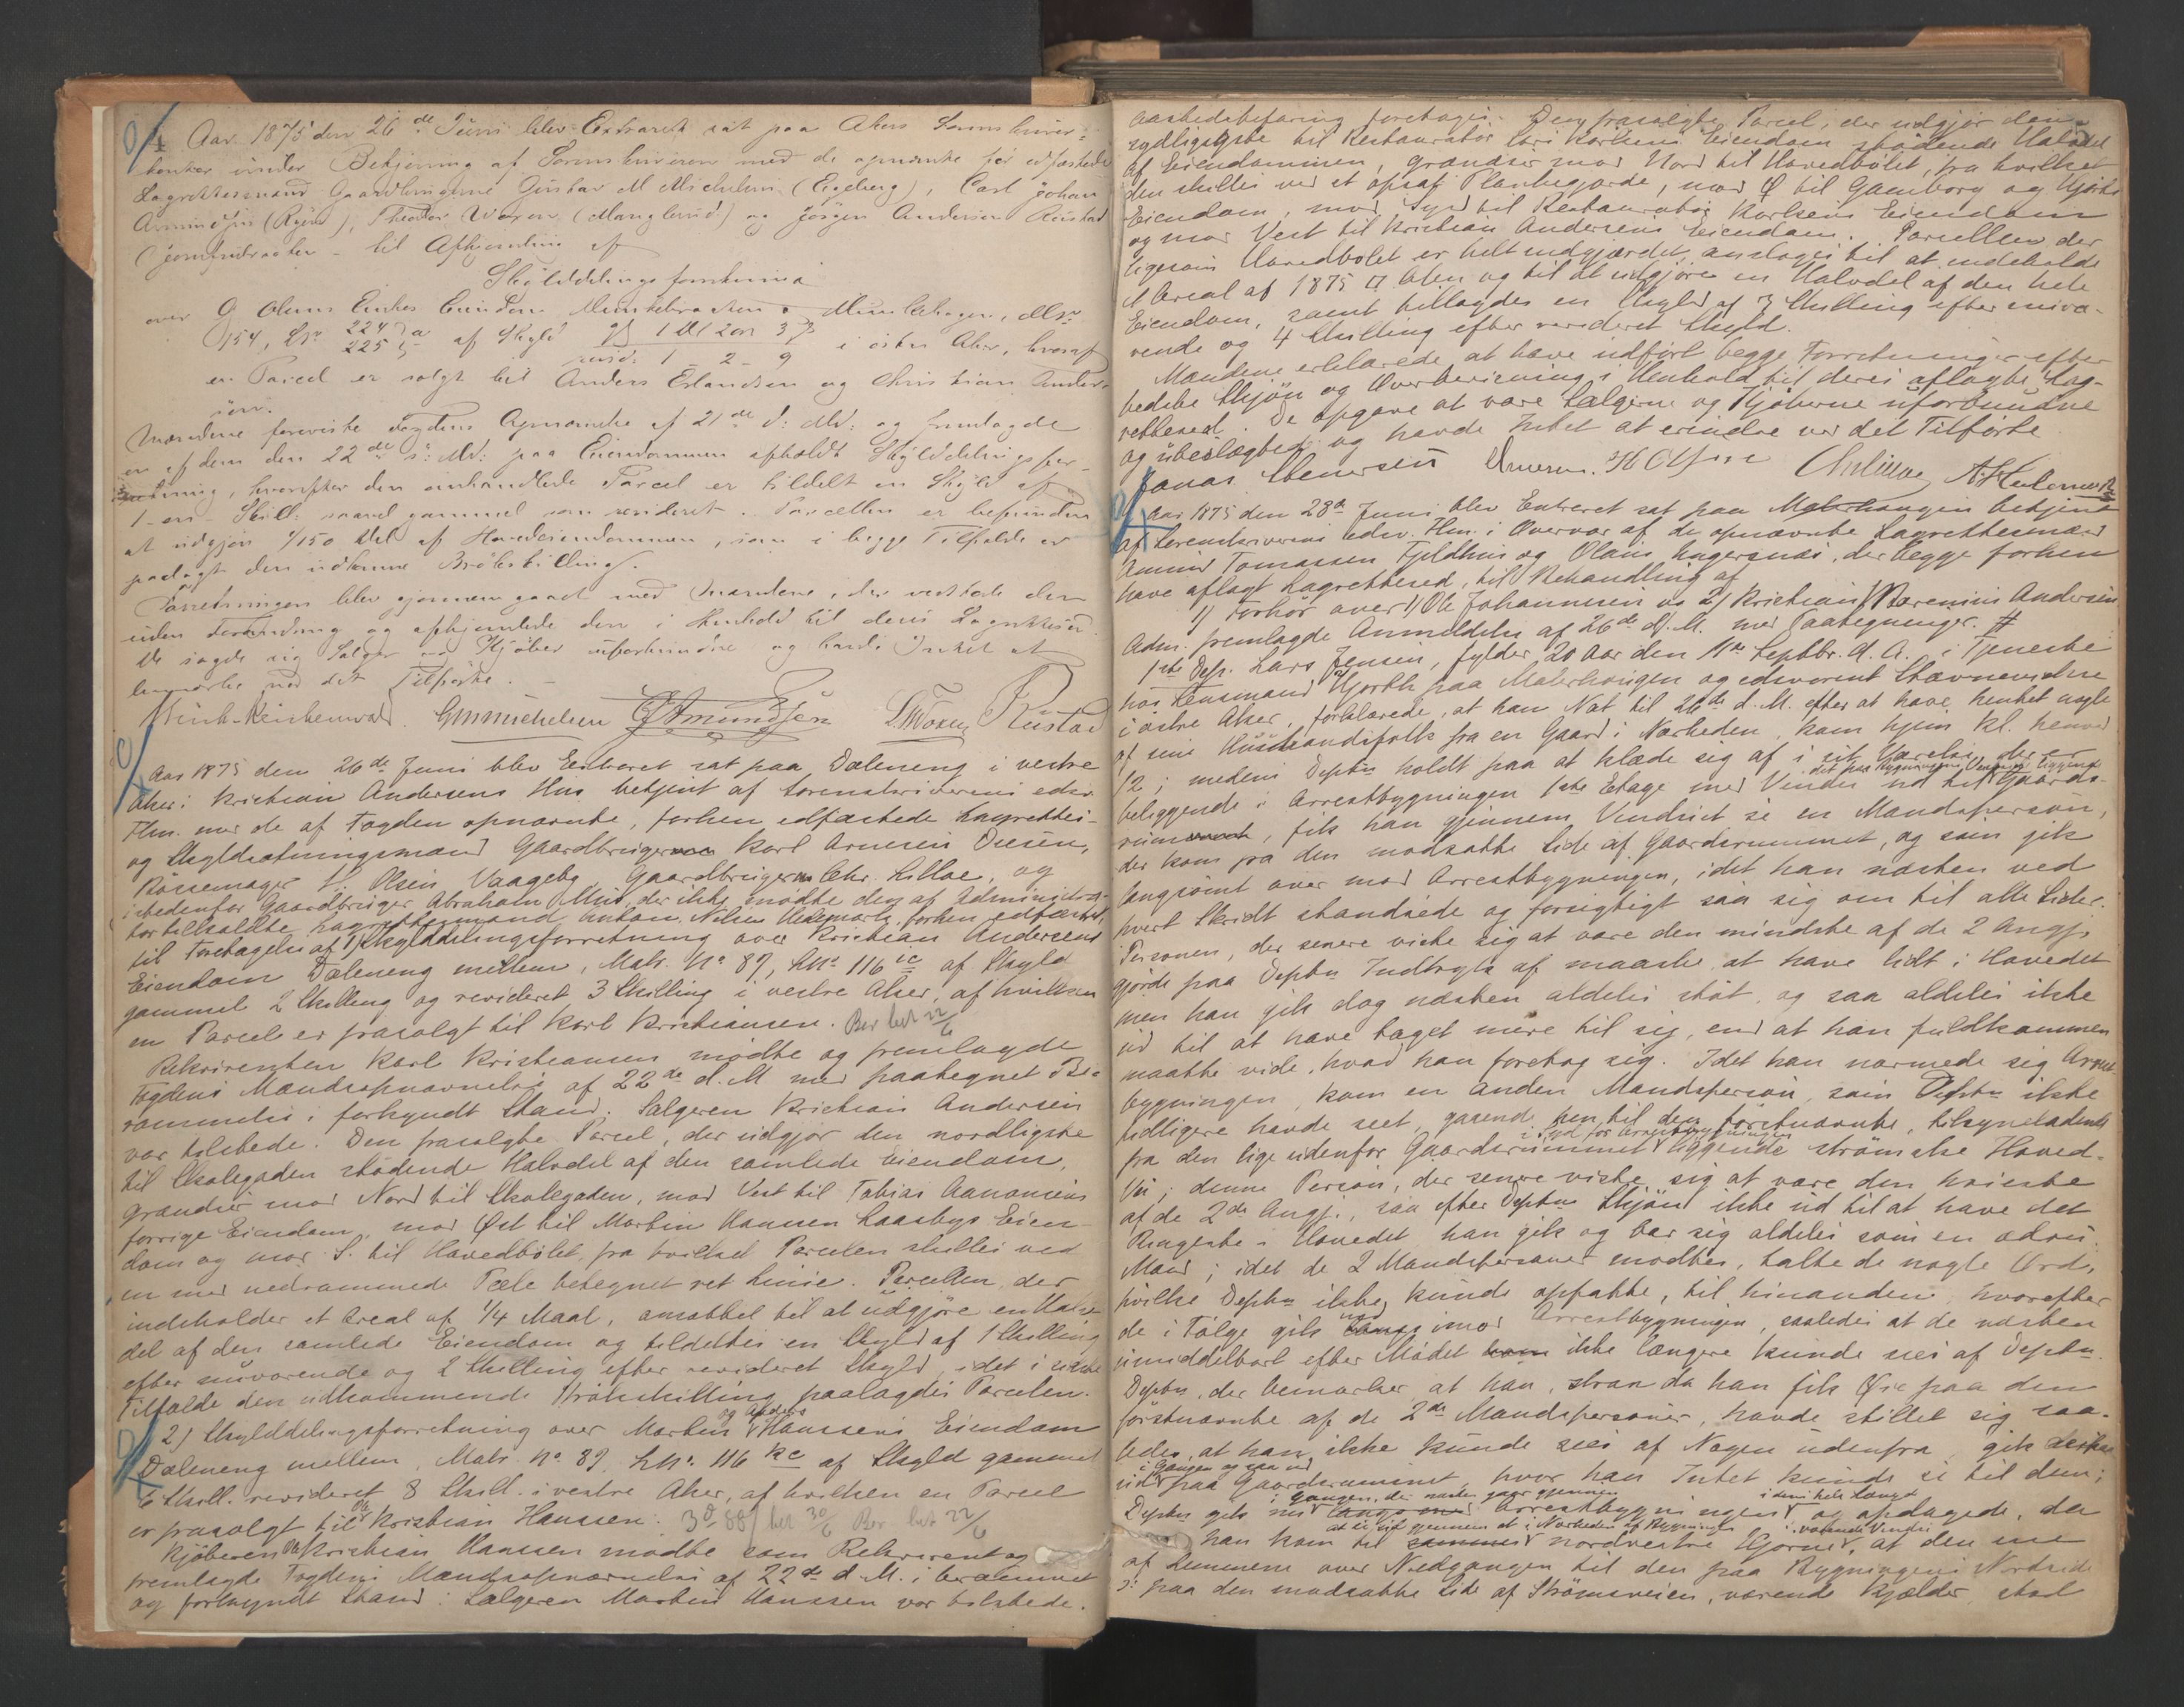 Aar 1875 den 26de Juni blev Extraret sat paa Akers Sorenskriver-
kontor under Betjening af Sorenskriveren med de opnævnte før edfæstede
Lagrettesmænd Gaardbrugerne Gustav M Michelsen (Egeberg), Carl Johan
Amundsen (Ryen), Theodor Woxen (Manglerud) og Jørgen Andersen Rustad
til Afhjemling af
Skylddelingsforretning
over G Olsens Enkes Eiendom Munkebraaten Munkehagen, Mno
154, Lno 224 225 a af Skyld gl 1 Dl 2 ort 3 ß i østre Aker, hvoraf
revid: 1 - 2 - 9
en Parcel er solgt til Anders Erlandsen og Christian Ander-
sen.
Mændene foreviste Fogdens Opnævnelse af 21de d: Md: og fremlagde
en af dem den 22de s: Md: paa Eiendommen afholdt Skylddelingsfor-
retning, hvorefter den omhandlede Parcel er tildelt en Skyld af
1 - en - Skill: saavel gammel som revideret. Parcellen er befunden
at udgjøre 1/150 Del af Hovedeiendommen, som i begge Tilfælde er
paalagt den udkomne Brøkskilling.
Forretningen blev gjennemgaaet med Mændene, der vedtoge den
uden Forandring og afhjemlede den i Henhold til deres Lagrettesed.
De sagde sig Sælger og Kjøber uforbundne og havde Intet at
bemærke ved det Tilførte.
Munch-Reichenwald. GMMichelsen CJAmundsen ThWoxen Rustad
Aar 1875 den 26de Juni blev Extraret sat paa Dæleneng i vestre
Aker i Kristian Andersens Hus betjent af Sorenskriverens edsv.
Fkm. med de af Fogden opnævnte, forhen edfæstede Lagrettes-
og Skyldsætningsmænd Gaardbrugerne Karl Arnesen Duesen,
Børsemager H. Olsen Vaageby, Gaardbruger Chr. Lilloe, og
istedenfor Gaardbruger Abraham Mus, der ikke mødte den af Administra-
tor tilkaldte Lagrettesmand Anton Nilsen Hedemark, forhen edfæstet,
til Foretagelse af 1) Skylddelingsforretning over Kristian Andersens
Eiendom Dæleneng mellem, Matr. No 87, Lno 116 ic af Skyld
gammel 2 Skilling og revideret 3 Skilling i vestre Aker, af hvilken
en Parcel er frasolgt til Karl Kristiansen. Ber bet 22/6
Rekvirenten Karl Kristiansen mødte og fremlagde
Fogdens Mændsopnævnelse af 22de d. M med paategnet Be-
rammelse i forkyndt Stand. Sælgeren Kristian Andersen
var tilstede. Den frasolgte Parcel, der udgjør den nordligste
til Skolegaden stødende Halvdel af den samlede Eiendom,
grændser mod Nord til Skolegaden, mod Vest til Tobias Aanonsens
forrige Eiendom, mod Øst til Martin Hansen Laasbys Eien-
dom og mod S. til Hovedbølet, fra hvilket Parcelen skilles ved
en med nedrammede Pæle betegnet ret Linie. Parcellen, der
indeholder et Areal af 1/4 Maal, ansattes til at udgjøre en Halv-
del af den samlede Eiendom og tildeltes en Skyld af 1 Skilling
efter nuværende og 2 Skilling efter revideret Skyld, idet i sidste
Tilfælde den udkommende Brøkskilling paalagdes Parcelen.
2) Skylddelingsforretning over Martin og Anders Hanssens Eiendom
Dæleneng mellem, Matr. No 87 Lno. 116 kc af Skyld gammel
6 Skill. revideret 8 Skill. i vestre Aker, af hvilken en Parcel
er frasolgt til Ole Kristian Hanssen. bet 30/6 Ber bet 22/6
Kjøberen Ole Kristian Hanssen mødte som Rekvirent og
fremlagde Fogdens Mændsopnævnelse af 22de d. M. i berammet
og forkyndt Stand. Sælgeren Martin Hanssen var tilstede.
Aastedsbefaring foretoges. Den frasolgte Parcel, der udgjør den
sydligste til Restauratør Karlsens Eiendom stødende Halvdel
af Eiendommen, grændser mod Nord til Hovedbølet, fra hvilket
den skilles ved et opsat Plankegjærde, mod Ø til Gamborg og Hjorts
Eiendom, mod Syd til Restauratør Karlsens Eiendom
og mod Vest til Kristian Andersens Eiendom. Parcellen, der
ligesom Hovedbølet er helt indgjærdet, ansloges til at indeholde
et Areal af 1875 □ Alen og til at udgjøre en Halvdel af den hele
Eiendom, samt tillagdes en Skyld af 3 Skilling efter nuvæ-
rende og 4 Skilling efter revideret Skyld.
Mændene erklærede at have udført begge Forretninger efter
bedste Skjøn og Overbevisning i Henhold til deres aflagte Lag-
rettesed. De opgave at være Sælgerne og Kjøberne uforbundne
og ubeslægtede og havde Intet at erindre ved det Tilførte.
Jonas Stenersen Duesen. HOlsen ChrLilloe A. Hedemark
Aar 1875 den 28de Juni blev Extraret sat paa Malerhaugen betjent
af Sorenskriverens edsv. Fkm. i Overvær af de opnævnte Lagrettesmænd
Amund Tomassen Fjeldhus og Olaus Hagersnæs, der begge forhen
have aflagt Lagrettesed, til Behandling af
1) Forhør over 1) Ole Johannesen og 2) Kristian Marenius Andersen
Adm. fremlagde Anmeldelse af 26de d. M. med Paategninger. #
1ste Dep. Lars Jensen, fylder 20 Aar den 11te Septbr. d. A. i Tjeneste
hos Lensmand Hjorth paa Malerhaugen og edsvoren Stævnevidne
i østre Aker, forklarede, at han Nat til 26de d. M. efter at have hentet nogle
af sine Husbondsfolk fra en Gaard i Nærheden, kom hjem Kl. henved
12; medens Deptn holdt paa at klæde sig af i sit Værelse, der er
beliggende i Arrestbygningen 1ste Etage med Vindu ud til det paa Bygningens Vestside liggende Gaards-
rum, fik han gjennem Vinduet se en Mandsperson,
der kom fra den modsatte Side af Gaardsrummet, og som gik
langsomt over mod Arrestbygningen, idet han næsten ved
hvert Skridt standsede og forsigtigt saa sig om til alle Sider.
Personen, der senere viste sig at være den mindste af de 2 Angj.
gjorde paa Deptn Indtryk af maaske at have lidt i Hovedet
men han gik dog næsten aldeles støt, og saa aldeles ikke
ud til at have taget mere til sig, end at han fuldkommen
maatte vide, hvad han foretog sig. Idet han nærmede sig Arrest-
bygningen, kom en anden Mandsperson, som Deptn ikke
tidligere havde seet, gaaende hen til den førstnævnte, tilsyneladende
fra den lige udenfor Gaardsrummet i Syd for Arrestbygningen liggende strømske Hoved-
vei; denne Person, der senere viste sig at være den høieste
af de 2de Angj., saa efter Deptns Skjøn ikke ud til at have det
Ringeste i Hovedet, han gik og bar sig aldeles som en ædru
Mand; idet de 2 Mandspersoner mødtes, talte de nogle Ord,
hvilke Deptn ikke kunde opfatte, til hinanden, hvorefter
de i Følge gik ned imod Arrestbygningen, saaledes at de næsten
umiddelbart efter Mødet ikke længere kunde sees af Deptn.
Deptn, der bemærker at han, strax da han fik Øie paa den
førstnævnte af de 2de Mandspersoner, havde stillet sig saa-
ledes, at han ikke kunde sees af Nogen udenfra, gik
i Gangen og saa ud
ud paa Gaardsrummet, hvor han Intet kunde se til dem;
i Gangen, der næsten gaar gjennem i dens hele Længde
Deptn gik ned langs med Arrestbygningen og opdagede, da
at se ud gjennem et i Nærheden af Bygningens værende Vindu
han kom til nordvestre Hjørne, at den ene
af Lemmene over Nedgangen til den paa Bygningens Nordside
ɔ: paa den modsatte Side af Strømsveien, værende Kjælder, stod